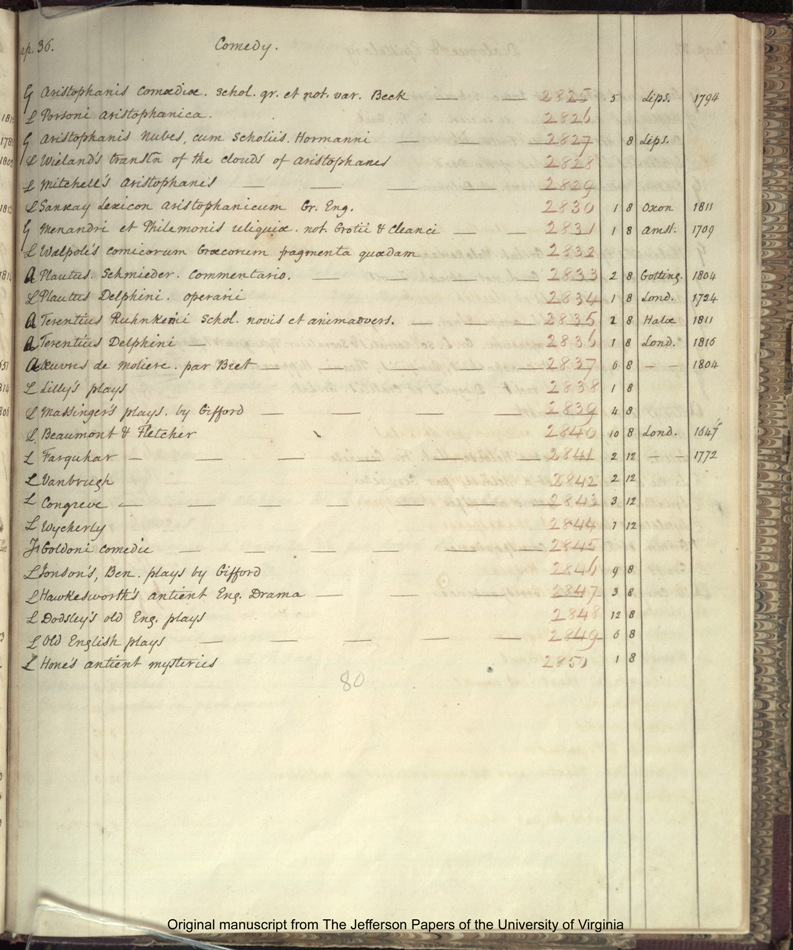 ap. 36. Comedy.
G Aristophanis comœdiæ. schol. gr. et not. var. Beck — — 2825 5 Lips. 1794
L Porsoni Aristophanica. 2826
G Aristophanis Nubes, cum Scholiis. Hermanni — — 2827 8 Lips.
L Wieland's transln of the clouds of Aristophanes 2828
L Mitchell's Aristophanes — — — — — — 2829
L Sanxay Lexicon Aristophanicum Gr. Eng. 2830 1 8 Oxon 1811
G Menandri et Philemonis reliquiæ. not. Grotii & Cleanci — — — 2831 1 8 Amst. 1709
L Walpole's comicorum Græcorum fragmenta quædam 2832
A Plautus Schmieder. Commentario. — — — — 2833 2 8 Gotting. 1804
L Plautus Delphini. operarii 2834 1 8 Lond. 1724
A Terentius Ruhnkenii Schol. novis et animadvers. — — — 2835 2 8 Halæ 1811
A Terentius Delphini — 2836 1 8 Lond. 1816
A Œuvres de moliere. par Bret — — — — — 2837 6 8 — — 1804
L Lilly's plays 2838 1 8
L Massinger's plays. by Gifford — — — — — 2839 4 8
L Beaumont & Fletcher 2840 10 8 Lond. 1647
L Farquhar — — — — — — — 2841 2 12 — — 1772
L Vanbrugh 2842 2 12
L Congreve — — — — — — — 2843 3 12
L Wycherly 2844 1 12
Goldoni comedie — — — — — — 2845
L Jonson's, Ben. plays by Gifford 2846 9 8
L Hawkesworth's antient Eng. Drama — — — — — 2847 3 8
L Dodsley's old Eng. plays 2848 12 8
L Old English plays — — — — — — 2849 6 8
L Hone's antient mysteries 2850 1 8
80
Original manuscript from The Jefferson Papers of the University of Virginia